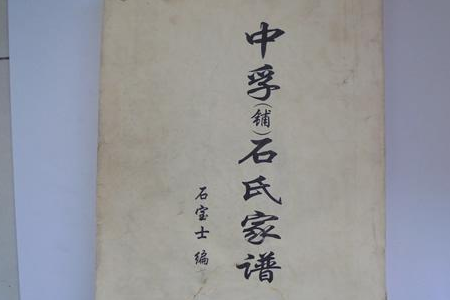 中孚(铺)石氏家谱
石宝士 编